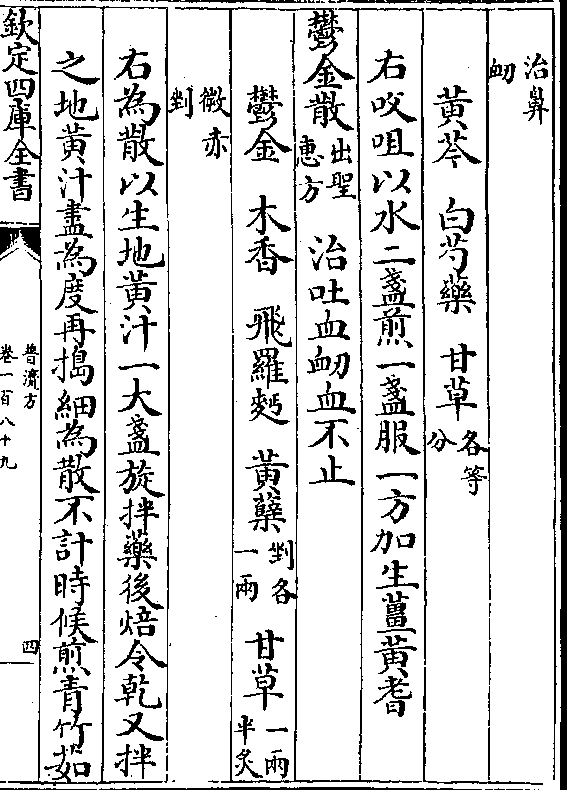 治鼻衂
黃芩 白芍藥 甘草各等分
右㕮咀以水二盞煎一盞服一方加生薑黃耆
鬱金散出聖惠方 治吐血衂血不止
鬱金 木香 飛羅麫 黃蘗剉各一兩 甘草一兩半炙
微赤剉
右為散以生地黃汁一大盞旋拌藥後焙令乾又拌
之地黃汁盡為度再搗細為散不計時候煎青竹茹
欽定四庫全書
普濟方
卷一百八十九
四